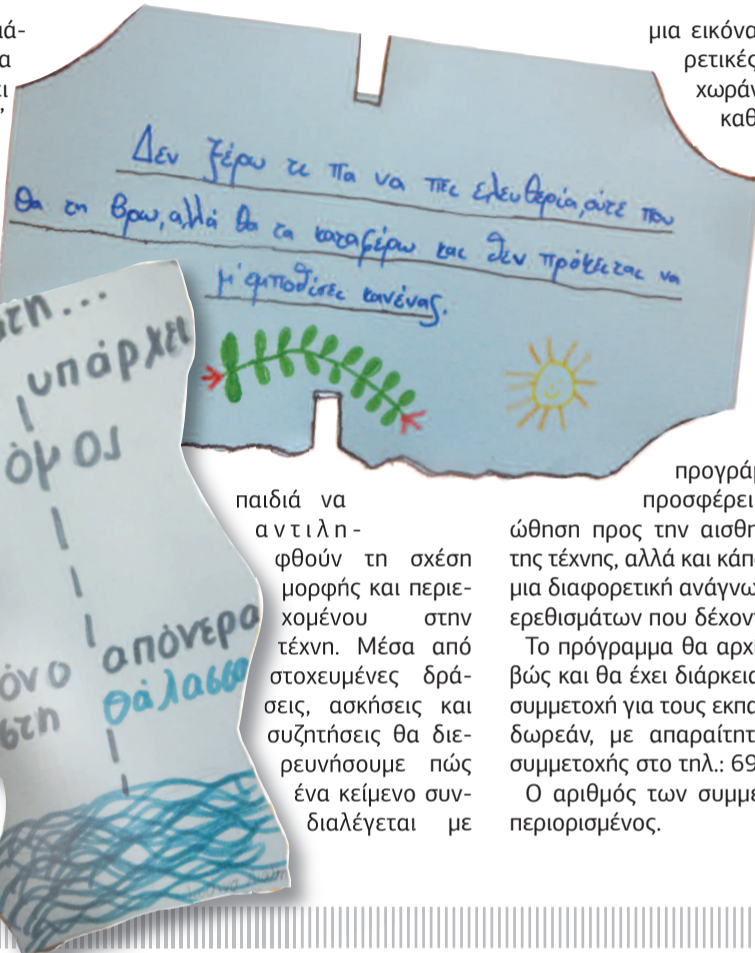 ιά-
α
μια εικόνα
ρετικές
χωράν
καθ
Δεν ξέρω τι πα να πει ελευθερία, ούτε που
θα τη βρω, αλλά θα τα καταφέρω και δεν πρόκειται να
μ' εμποδίσει κανένας.
στη...
υπάρχει
όνο απόνερα
στη θάλασσα
παιδιά να
αντιλη-
φθούν τη σχέση
μορφής και περιε-
χομένου στην
τέχνη. Μέσα από
στοχευμένες δρά-
σεις, ασκήσεις και
συζητήσεις θα διε-
ρευνήσουμε πώς
ένα κείμενο συν-
διαλέγεται με
προγράμ
προσφέρει
ώθηση προς την αισθη
της τέχνης, αλλά και κάπο
μια διαφορετική ανάγνω
ερεθισμάτων που δέχοντ
Το πρόγραμμα θα αρχί
βώς και θα έχει διάρκεια
συμμετοχή για τους εκπα
δωρεάν, με απαραίτητ
συμμετοχής στο τηλ.: 69
Ο αριθμός των συμμε
περιορισμένος.